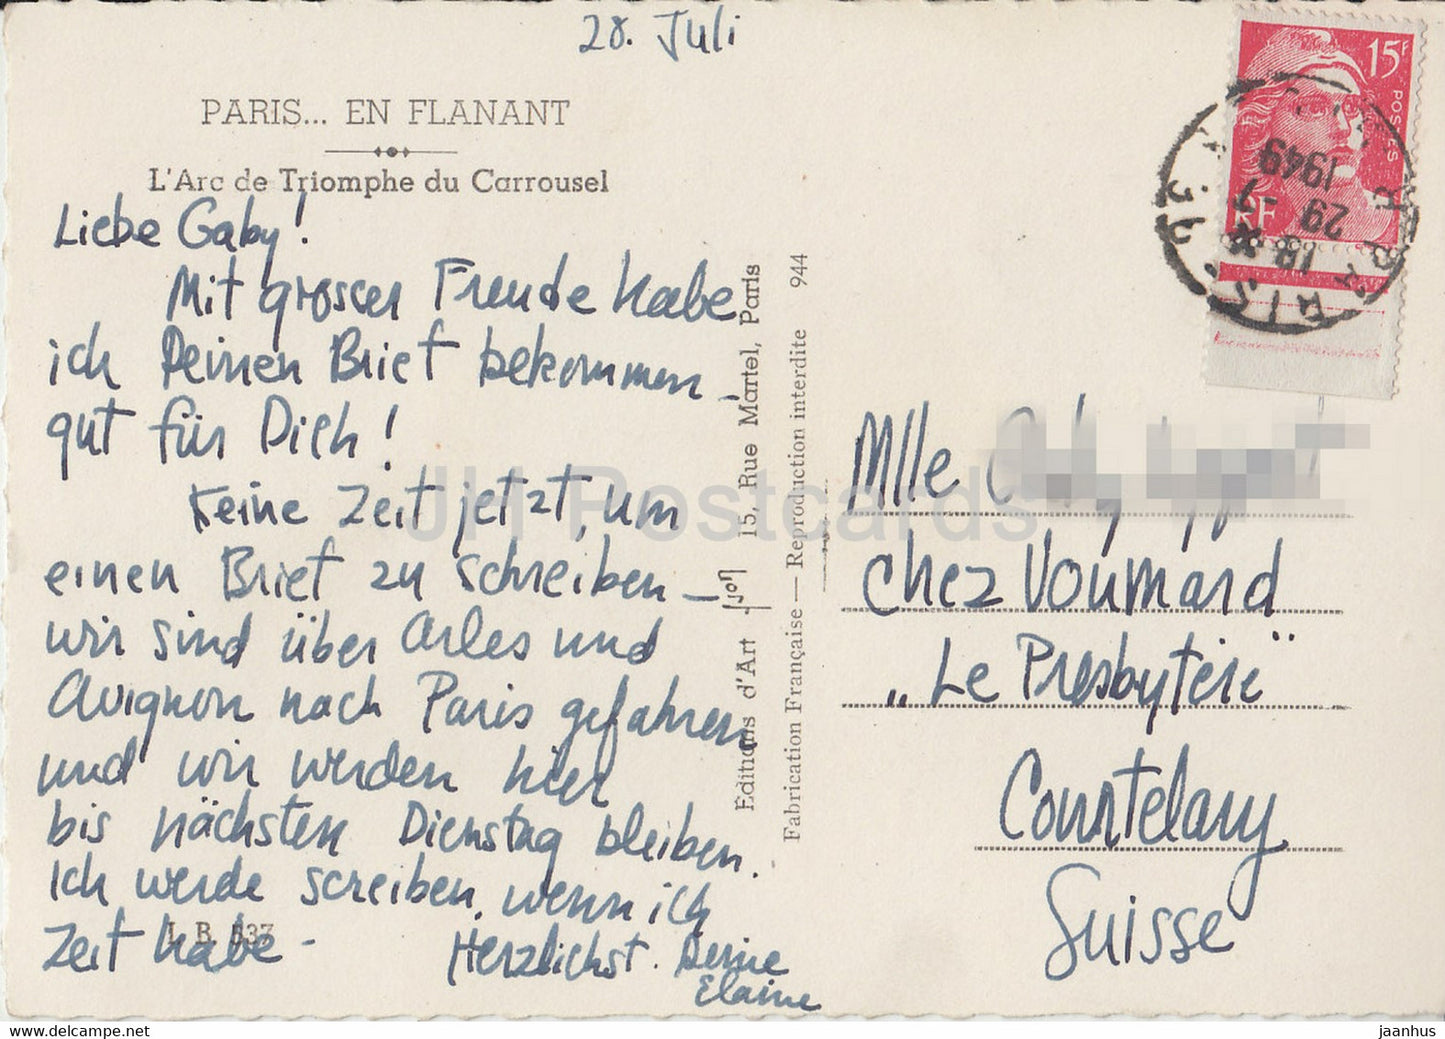 28. Juli
PARIS... EN FLANANT
L'Arc de Triomphe du Carrousel
Liebe Gaby!
Mit grosser Freude habe
ich Deinen Brief bekommen –
gut für Dich!
Keine Zeit jetzt, um
einen Brief zu schreiben –
wir sind über Arles und
Avignon nach Paris gefahren
und wir werden hier
bis nächsten Dienstag bleiben.
Ich werde screiben, wenn ich
Zeit habe –
Herzlichst. Deine
Elaine
L. B. 537
Editions d'Art Yvon 15, Rue Martel, Paris
Fabrication Française — Reproduction interdite 944
15F
POSTES
RF
18
29 -7
1949
PARIS
Mlle
chez Voumard
„Le Presbytère“
Courtelary
Suisse
JH Postcards
jaanhus